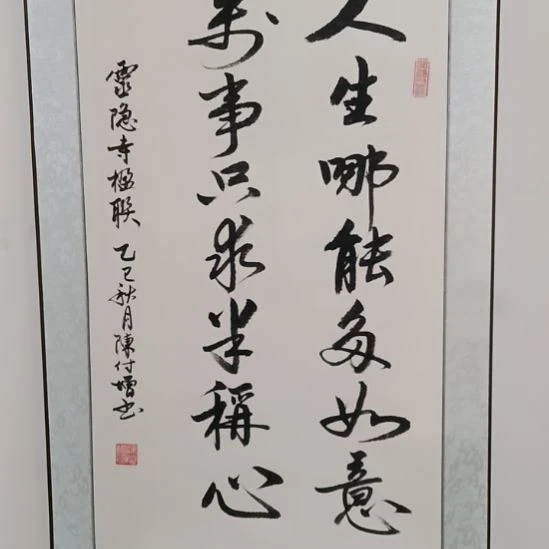 人生哪能多如意
万事只求半称心
靈隐寺楹联 乙巳秋月陳付增书